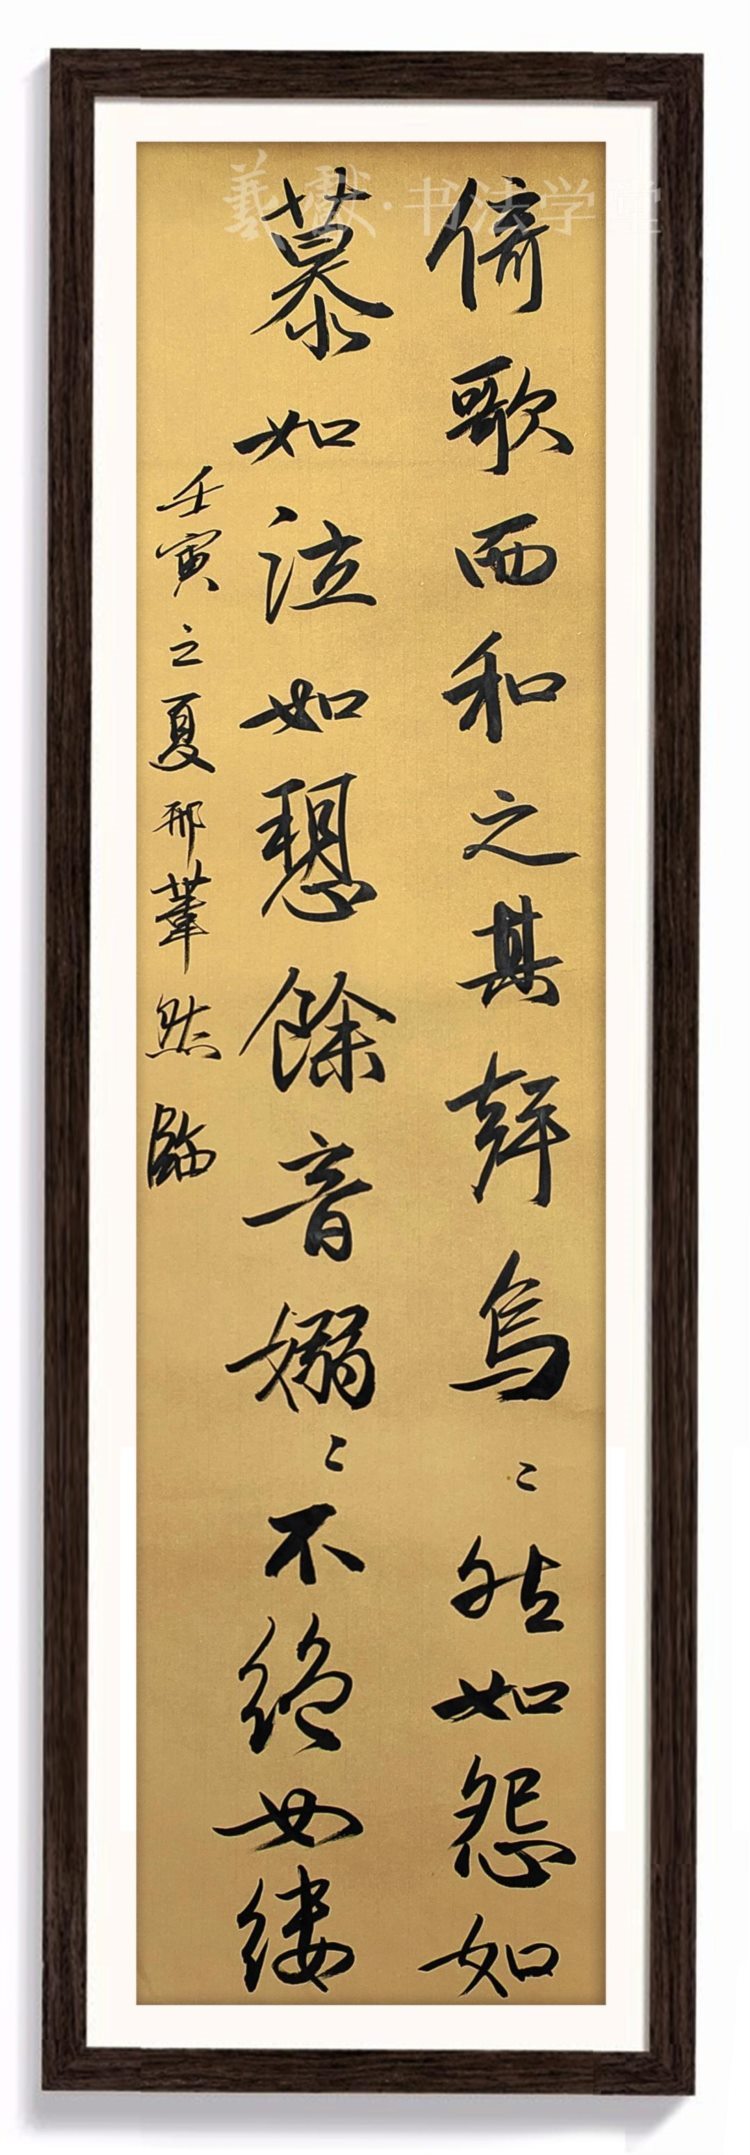 羲獻·书法学堂
倚歌而和之其聲烏〻然如怨如
慕如泣如愬餘音嫋〻不絕如縷
壬寅之夏邢葦然臨